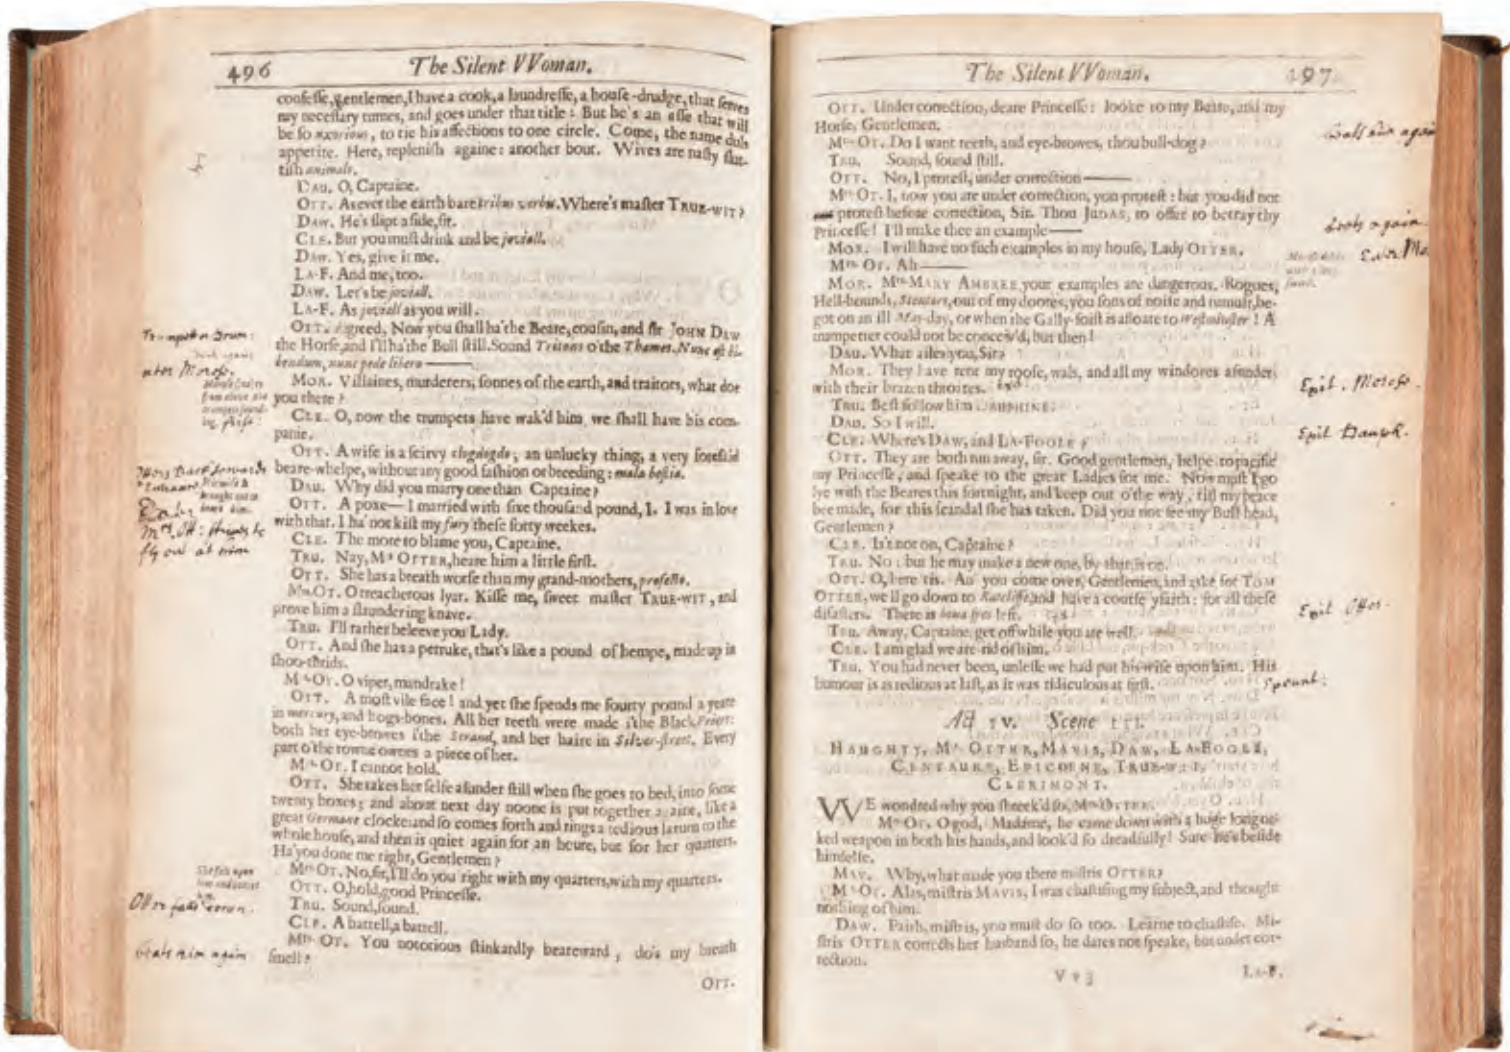 496 The Silent VVoman.
confesse, gentlemen, I have a cook, a laundresse, a house-drudge, that serves
my necessary turnes, and goes under that title: But he's an asse that will
be so uxorious, to tie his affections to one circle. Come, the name duls
appetite. Here, replenish againe: another bout. Wives are nasty slut-
tish animals.
DAU. O, Captaine.
OTT. As ever the earth bare tribus verbis. Where's master TRUE-WIT?
DAW. He's slipt aside, sir.
CLE. But you must drink and be joviall.
DAW. Yes, give it me.
LA-F. And me, too.
DAW. Let's be joviall.
LA-F. As joviall as you will.
OTT. Agreed, Now you shall ha' the Beare, cousin, and sir JOHN DAW
the Horse, and I'll ha' the Bull still. Sound Tritons o' the Thames. Nunc est bi-
bendum, nunc pede libero ——
MOR. Villaines, murderers, sonnes of the earth, and traitors, what doe
you there?
CLE. O, now the trumpets have wak'd him, we shall have his com-
panie.
OTT. A wife is a scirvy clogdogdo; an unlucky thing, a very foresaid
beare-whelpe, without any good fashion or breeding: mala bestia.
DAU. Why did you marry one than Captaine?
OTT. A poxe— I married with sixe thousand pound, I. I was in love
with that. I ha' not kist my fury these forty weekes.
CLE. The more to blame you, Captaine.
TRU. Nay, Mrs OTTER, heare him a little first.
OTT. She has a breath worse than my grand-mothers, profecto.
Mrs OT. O treacherous lyar. Kisse me, sweet master TRUE-WIT, and
prove him a slaundering knave.
TRU. I'll rather beleeve you Lady.
OTT. And she has a peruke, that's like a pound of hempe, made up in
shoo-thrids.
Mrs OT. O viper, mandrake!
OTT. A most vile face! and yet she spends me fourty pound a yeare
in mercury, and hogs-bones. All her teeth were made i' the Black-Friers:
both her eye-browes i' the Strand, and her haire in Silver-street. Every
part o' the towne ownes a piece of her.
Mrs OT. I cannot hold.
OTT. She takes her selfe asunder still when she goes to bed, into some
twenty boxes; and about next day noone is put together againe, like a
great Germane clocke: and so comes forth and rings a tedious larum to the
whole house, and then is quiet again for an houre, but for her quarters.
Ha' you done me right, Gentlemen?
Mrs OT. No, sir, I'll do you right with my quarters, with my quarters.
OTT. O, hold, good Princesse.
TRU. Sound, sound.
CLE. A battell, a battell.
Mrs OT. You notorious stinkardly beareward, do's my breath
smell?
OTT.
Morose
Enter
Mrs. Ott:
fly out at him
Otter falls down.
Beats him again
The Silent VVoman. 497
OTT. Under correction, deare Princesse: looke to my Beare, and my
Horse, Gentlemen.
Mrs OT. Do I want teeth, and eye-browes, thou bull-dog?
TRU. Sound, sound still.
OTT. No, I protest, under correction——
Mrs OT. I, now you are under correction, you protest: but you did not
protest before correction, Sir. Thou JUDAS, to offer to betray thy
Princesse! I'll make thee an example——
MOR. I will have no such examples in my house, Lady OTTER.
Mrs OT. Ah——
MOR. Mrs MARY AMBREE, your examples are dangerous. Rogues,
Hell-hounds, Stentors, out of my doores, you sons of noise and tumult, be-
got on an ill May-day, or when the Gally-foist is afloate to Westminster! A
trumpetter could not be conceiv'd, but then!
DAU. What ailes you, Sir?
MOR. They have rent my roofe, wals, and all my windores asunder,
with their brazen throates.
TRU. Best follow him DAUPHINE.
DAU. So I will.
CLE. Where's DAW, and LA-FOOLE?
OTT. They are both run away, sir. Good gentlemen, helpe to pacifie
my Princesse, and speake to the great Ladies for me. Now must I go
lye with the Beares this fortnight, and keep out o' the way, till my peace
bee made, for this scandal she has taken. Did you not see my Bull-head,
Gentlemen?
CLE. Is't not on, Captaine?
TRU. No: but he may make a new one, by that, is on.
OTT. O, here tis. An' you come over, Gentlemen, and aske for TOM
OTTER, we'll go down to Ratcliffe, and have a course yfaith: for all these
disasters. There is bona spes left.
TRU. Away, Captaine, get off while you are well.
CLE. I am glad we are rid of him.
TRU. You had never been, unlesse we had put his wife upon him. His
humour is as tedious at last, as it was ridiculous at first.
Act IV. Scene III.
HAUGHTY, Mrs OTTER, MAVIS, DAW, LA-FOOLE,
CENTAURE, EPICOENE, TRUE-WIT,
CLERIMONT.
WE wondred why you shreek'd so, Mrs OTTER.
Mrs OT. O god, Madame, he came down with a huge long na-
ked weapon in both his hands, and look'd so dreadfully! Sure he's beside
himselfe.
MAV. Why, what made you there mistris OTTER?
Mrs OT. Alas, mistris MAVIS, I was chastising my subject, and thought
nothing of him.
DAW. Faith, mistris, you must do so too. Learne to chastise. Mi-
stris OTTER corrects her husband so, he dares not speake, but under cor-
rection.
V v 3 LA-F.
Beats him again
Beats again.
Enter Mo.
Exit. Morose
Exit Dauph.
Exit Otter.